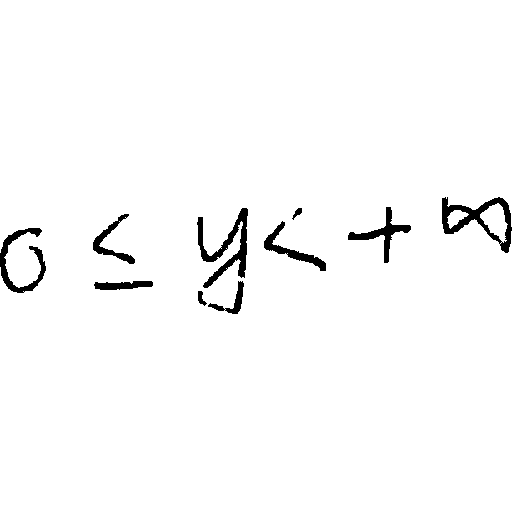 0 ≤ y < + ∞